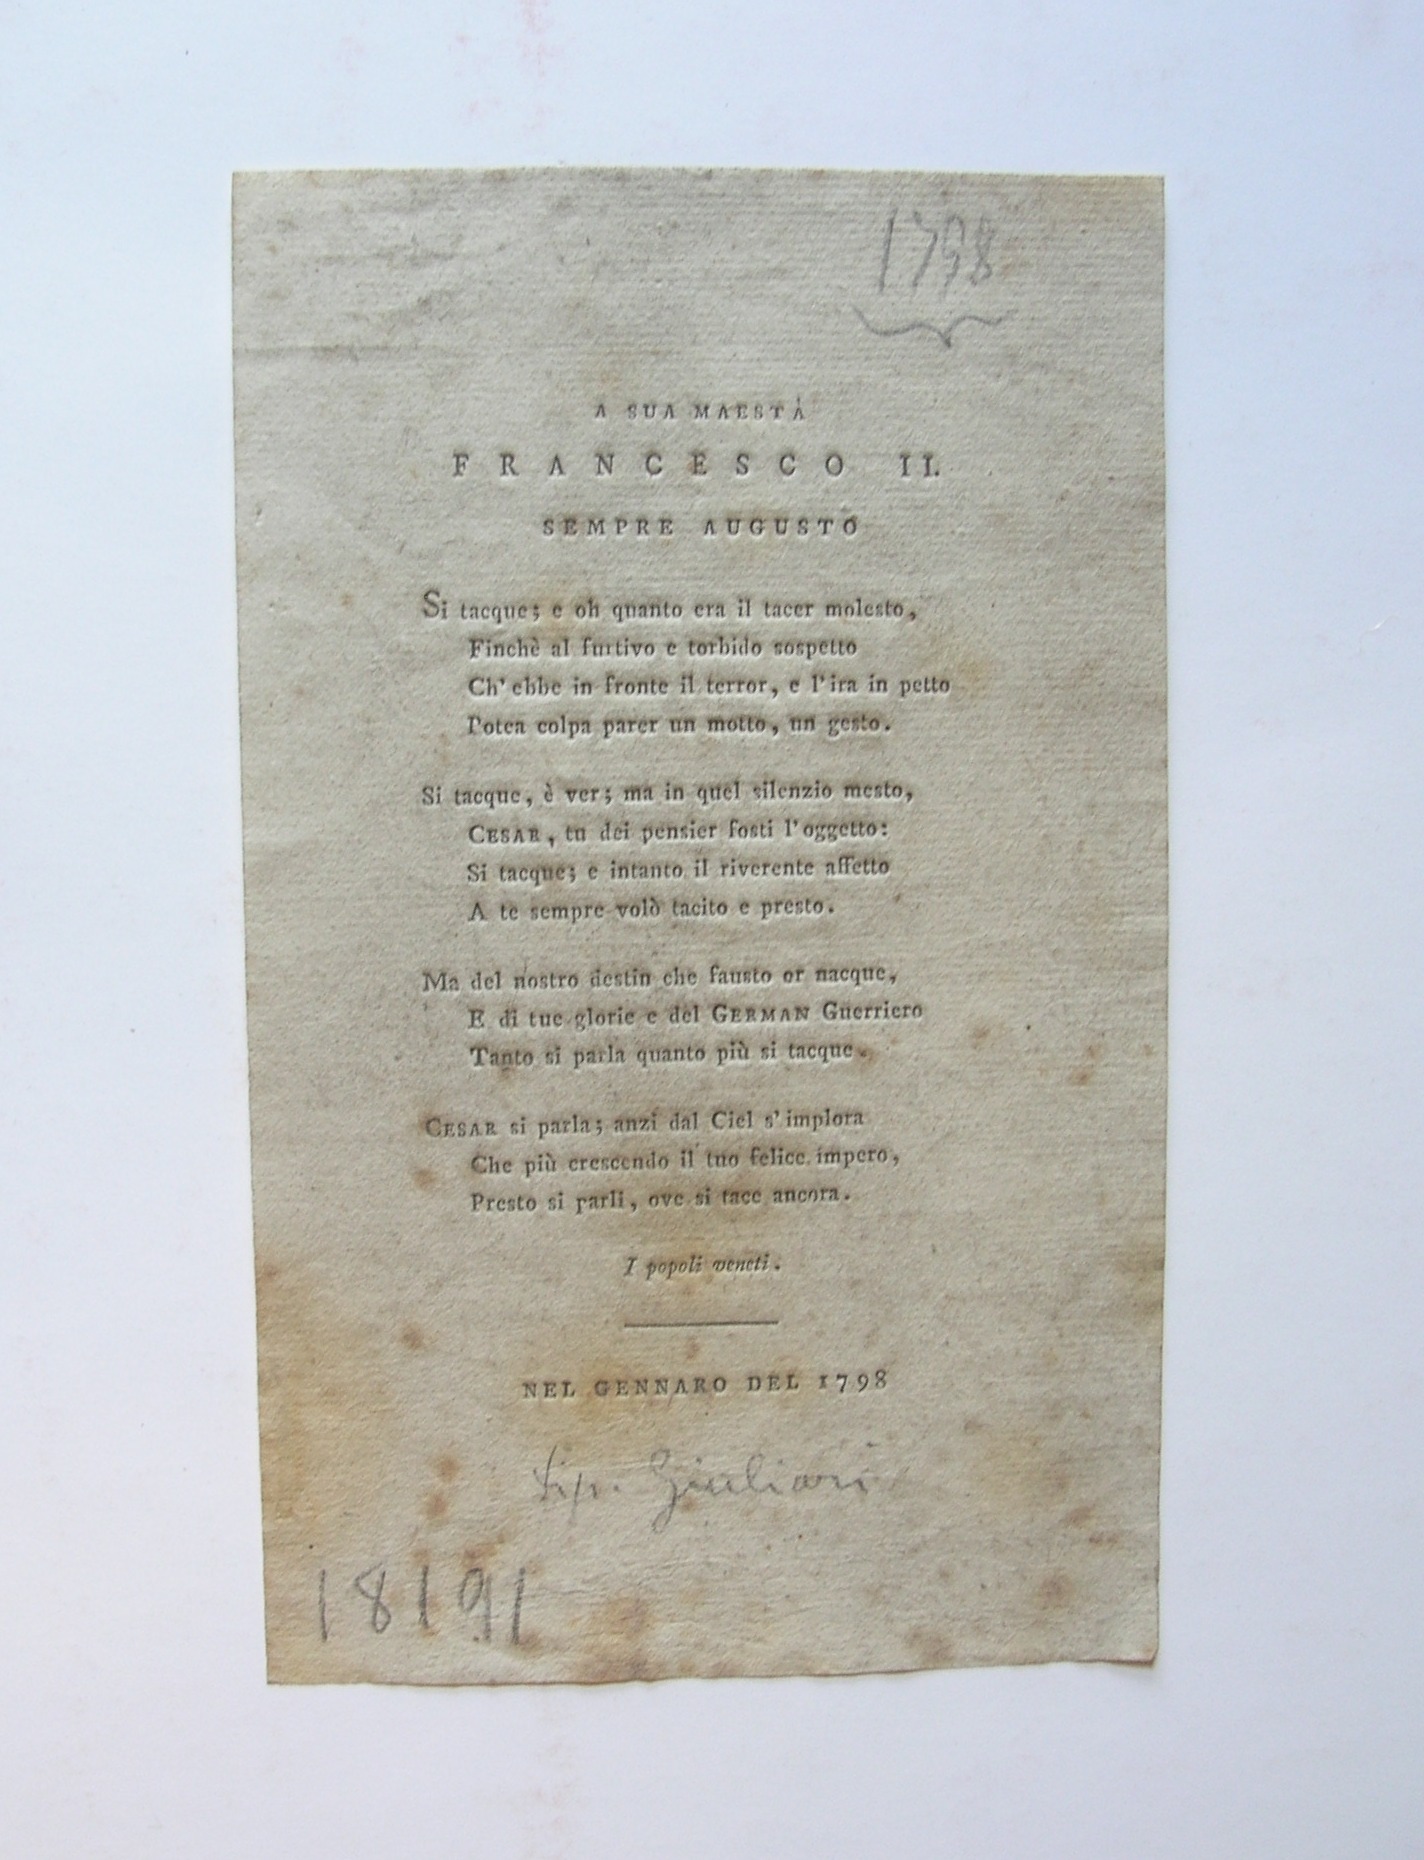 1798
A SUA MAESTÀ
FRANCESCO II.
SEMPRE AUGUSTO
Si tacque; e oh quanto era il tacer molesto,
Finchè al furtivo e torbido sospetto
Ch' ebbe in fronte il terror, e l'ira in petto
Potea colpa parer un motto, un gesto.
Si tacque, è ver; ma in quel silenzio mesto,
CESAR, tu dei pensier fosti l'oggetto:
Si tacque; e intanto il riverente affetto
A te sempre volò tacito e presto.
Ma del nostro destin che fausto or nacque,
E di tue glorie e del GERMAN Guerriero
Tanto si parla quanto più si tacque.
CESAR si parla; anzi dal Ciel s' implora
Che più crescendo il tuo felice impero,
Presto si parli, ove si tace ancora.
I popoli veneti.
NEL GENNARO DEL 1798
tip. Giuliari
18191